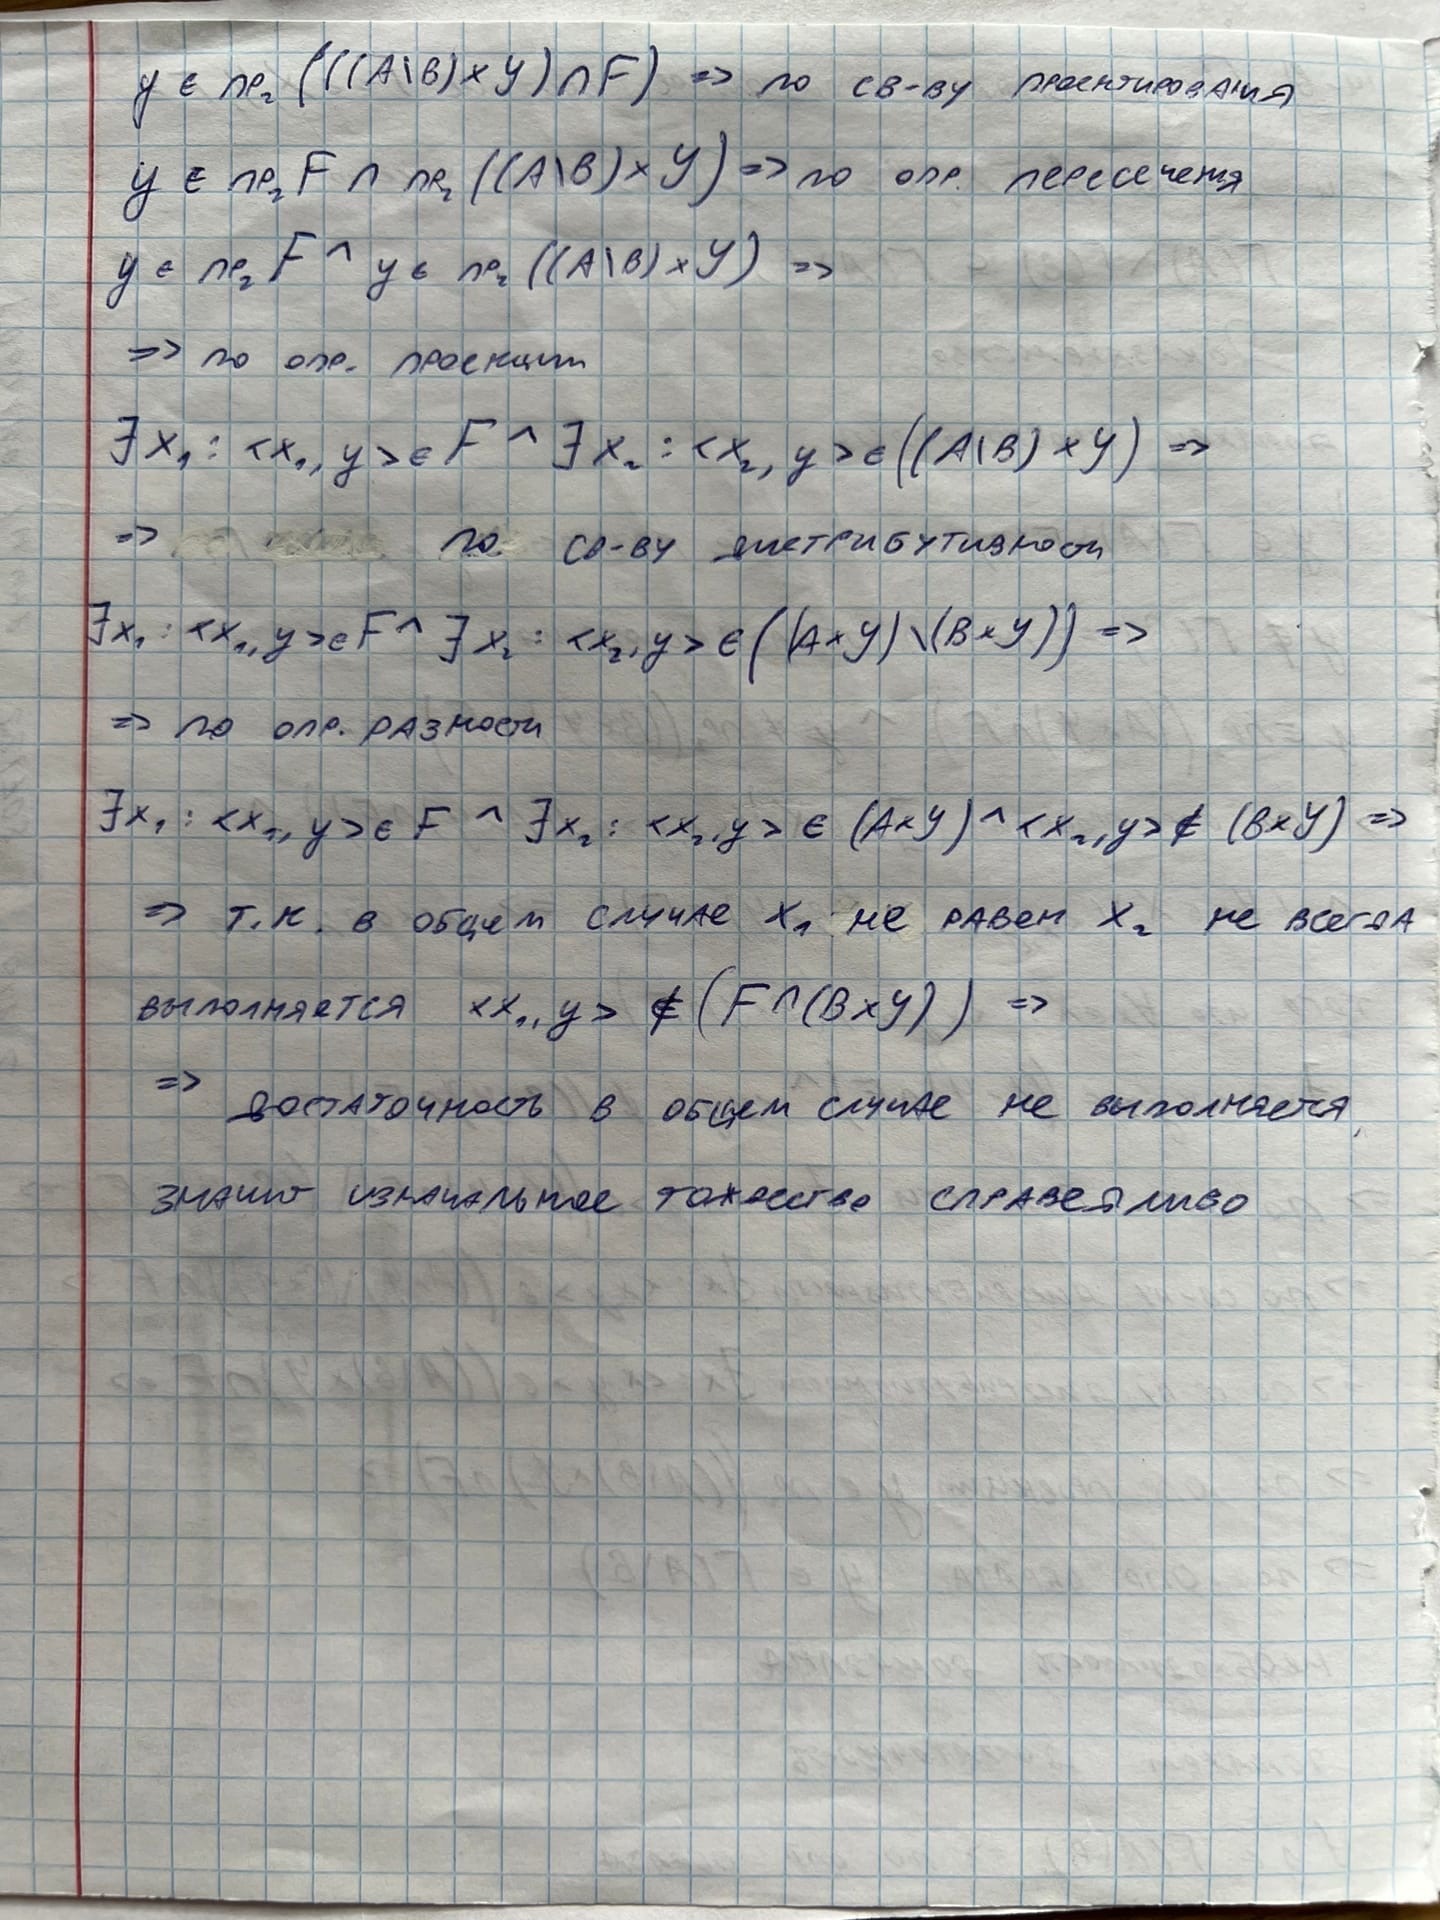 y ∈ пр₂(((A\B)×Y)∩F) => по св-ву проектирования
y ∈ пр₂F ∩ пр₂((A\B)×Y) => по опр. пересечения
y ∈ пр₂F ^ y ∈ пр₂((A\B)×Y) =>
=> по опр. проекции
∃x₁: <x₁, y> ∈ F ^ ∃x₂: <x₂, y> ∈ ((A\B)×Y) =>
=> по св-ву дистрибутивности
∃x₁: <x₁, y> ∈ F ^ ∃x₂: <x₂, y> ∈ ((A×Y)\(B×Y)) =>
=> по опр. разности
∃x₁: <x₁, y> ∈ F ^ ∃x₂: <x₂, y> ∈ (A×Y) ^ <x₂, y> ∉ (B×Y) =>
=> т.к. в общем случае x₁ не равен x₂ не всегда
выполняется <x₁, y> ∉ (F∩(B×Y)) =>
=> достаточность в общем случае не выполняется,
значит изначальное тождество справедливо